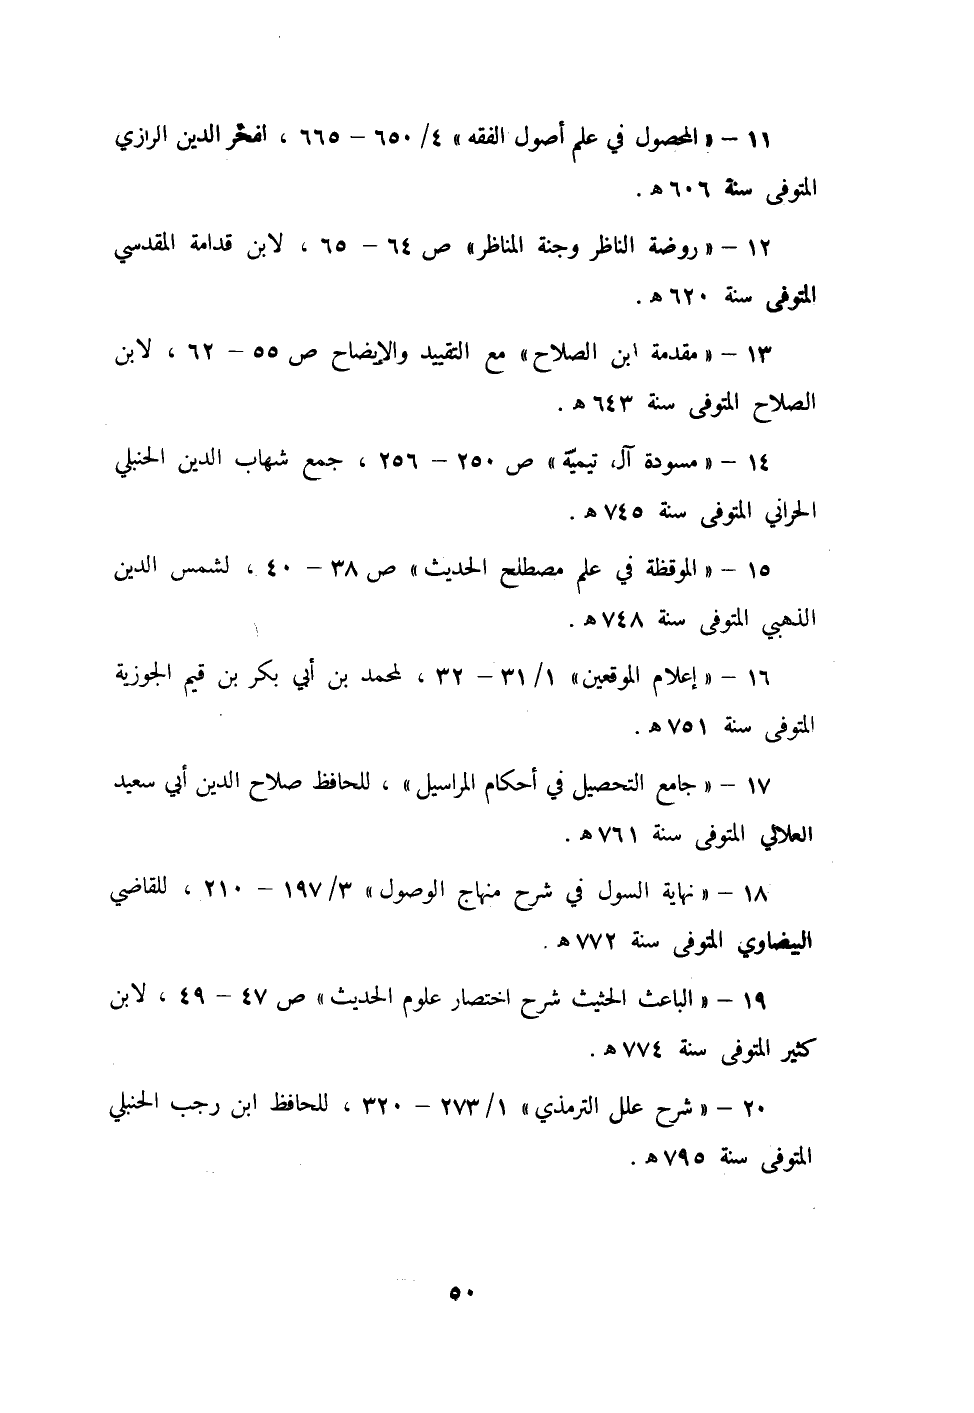 ١١ – « المحصول في علم أصول الفقه » ٤/ ٦٥٠ – ٦٦٥ ، لفخر الدين الرازي
المتوفى سنة ٦٠٦ هـ .
١٢ – « روضة الناظر وجنة المناظر » ص ٦٤ – ٦٥ ، لابن قدامة المقدسي
المتوفى سنة ٦٢٠ هـ .
١٣ – « مقدمة ابن الصلاح » مع التقييد والإيضاح ص ٥٥ – ٦٢ ، لابن
الصلاح المتوفى سنة ٦٤٣ هـ .
١٤ – « مسودة آل تيميّة » ص ٢٥٠ – ٢٥٦ ، جمع شهاب الدين الحنبلي
الحراني المتوفى سنة ٧٤٥ هـ .
١٥ – « الموقظة في علم مصطلح الحديث » ص ٣٨ – ٤٠ ، لشمس الدين
الذهبي المتوفى سنة ٧٤٨ هـ .
١٦ – « إعلام الموقعين » ١/ ٣١ – ٣٢ ، لمحمد بن أبي بكر بن قيم الجوزية
المتوفى سنة ٧٥١ هـ .
١٧ – « جامع التحصيل في أحكام المراسيل » ، للحافظ صلاح الدين أبي سعيد
العلالي المتوفى سنة ٧٦١ هـ .
١٨ – « نهاية السول في شرح منهاج الوصول » ٣/ ١٩٧ – ٢١٠ ، للقاضي
البيضاوي المتوفى سنة ٧٧٢ هـ .
١٩ – « الباعث الحثيث شرح اختصار علوم الحديث » ص ٤٧ – ٤٩ ، لابن
كثير المتوفى سنة ٧٧٤ هـ .
٢٠ – « شرح علل الترمذي » ١/ ٢٧٣ – ٣٢٠ ، للحافظ ابن رجب الحنبلي
المتوفى سنة ٧٩٥ هـ .
٥٠